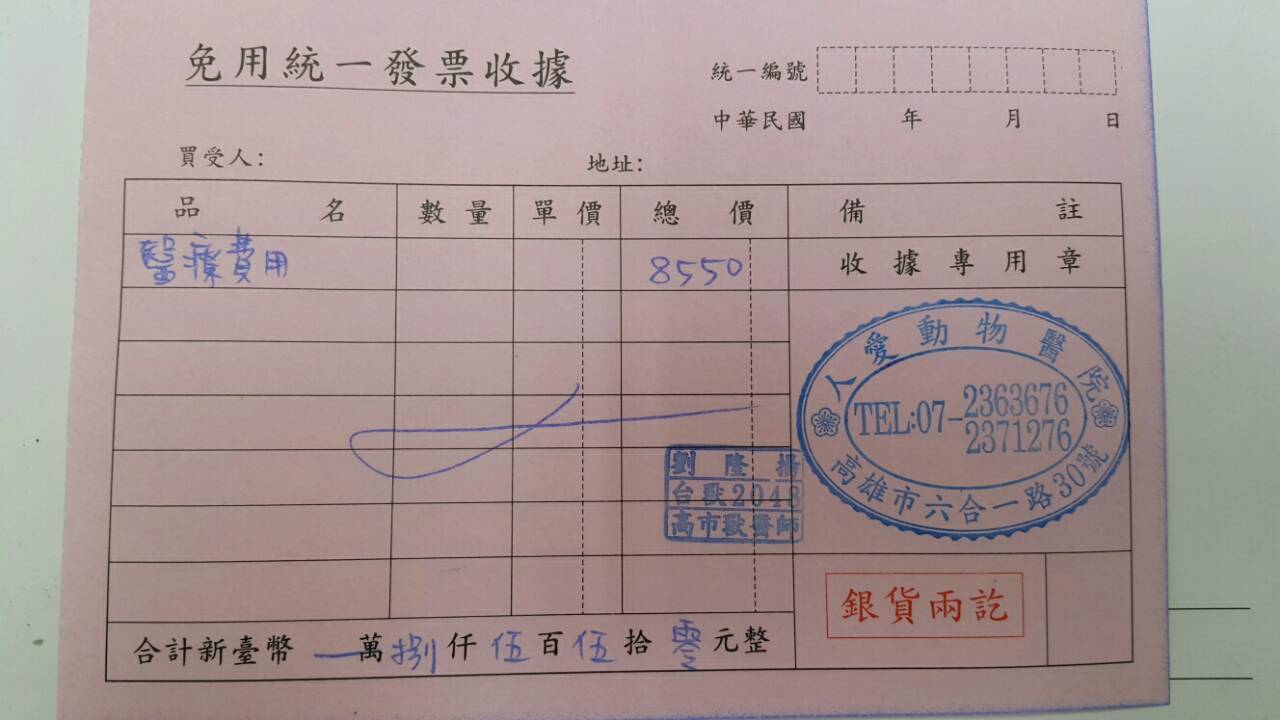 免用統一發票收據
統一編號
中華民國 年 月 日
買受人: 地址:
品名 數量 單價 總價 備註
醫療費用 8550 收據專用章
人愛動物醫院
TEL:07-2363676
2371276
高雄市六合一路30號
劉隆揚
台獸2048
高市獸醫師
銀貨兩訖
合計新臺幣 一萬捌仟伍百伍拾零元整